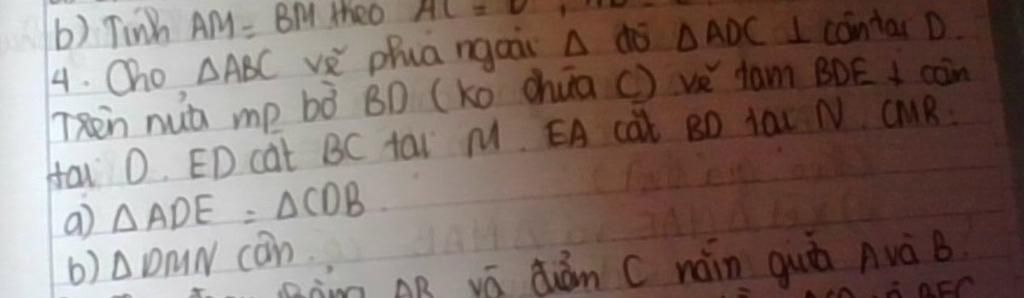 b) Tính AM = BM theo AC =
4. Cho ΔABC vẽ phía ngoài Δ đó ΔADC ⊥ cân tại D.
Trên nửa mp bờ BD (ko chứa C) vẽ tam BDE ⊥ cân
tại D. ED cắt BC tại M. EA cắt BD tại N. CMR:
a) ΔADE = ΔCDB.
b) ΔDMN cân.
AB và điểm C nằm giữa A và B.